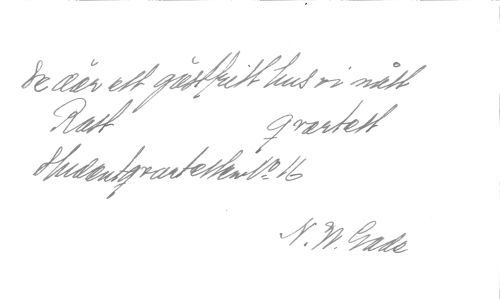 Se där ett gästfritt hus vi nått
Rast qvartett
Studentqvartetten No 16
N. W. Gade